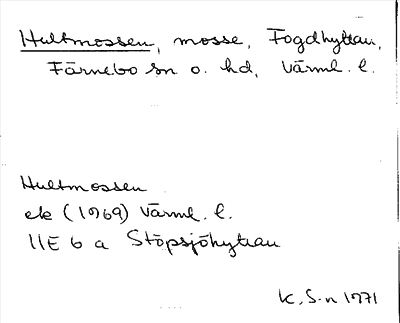 Hultmossen, mosse, Fogdhyttan,
Färnebo sn o. hd, Värml. l.
Hultmossen
ek (1969) Värml. l.
11E 6 a Stöpsjöhyttan
K. S-n 1971